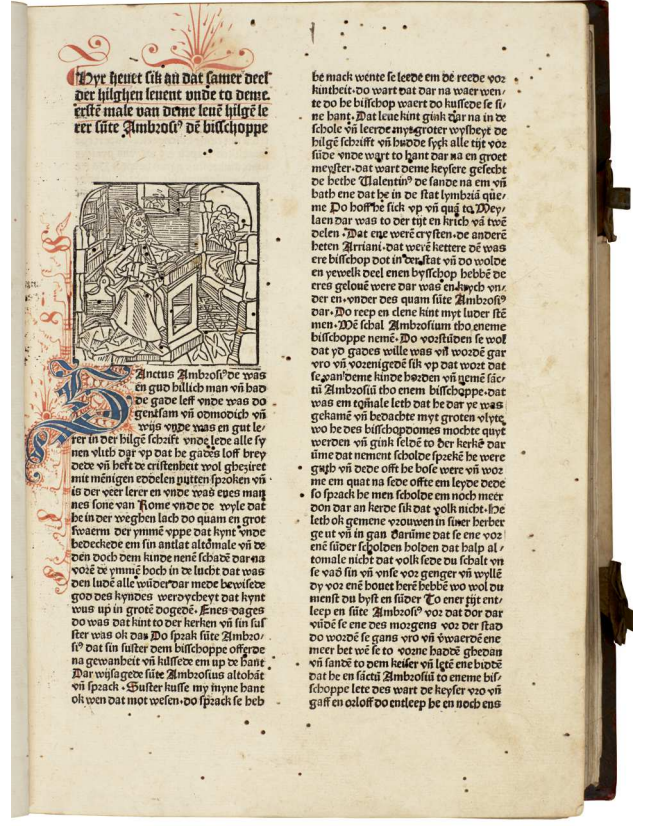 Hyr heuet sik an dat samer deel
der hilghen leuent vnde to deme.
erstē male van deme leuē hilgē le
rer sūte Ambrosiꝰ dē bisschoppe
SAnctus Ambrosiꝰ de was
ēn gud hillich man vñ had
de gade leff vnde was do
gentsam vñ odmodich vñ
wijs vnde was en gut le/
rer in der hilgē schrift vnde lede alle sy
nen vlith dar vp dat he gades loff brey
dede vñ heft de cristenheit wol gheziret
mit mēnigen eddelen nutten sproken vñ
is der veer lerer en vnde was eyes man
nes sone van Rome vnde de wyle dat
he in der weghen lach do quam en grot
swaerm der ymmē vppe dat kynt vnde
bedeckede em sin antlat altomale vñ de
den doch dem kinde nenē schadē dar na
vorē de ymmē hoch in de lucht dat was
den ludē alle wūder dar mede bewisede
god des kyndes werdycheyt dat kynt
wus up in grotē dogedē. Enes dages
do was dat kint to der kerken vñ sin sus
ster was ok dar Do sprak sūte Ambro/
siꝰ dat sin suster dem bisschoppe offerde
na gewanheit vñ kussede em up de hant
Dar wijsagede sūte Ambrosius altohāt
vñ sprack. Suster kusse my myne hant
ok wen dat mot wesen. do sprack se heb
he mack wente se leede em de reede vor
kintheit. do wart dat dar na waer wen/
te do he bisschop waert do kussede se si/
ne hant. Dat leue kint gink dar na in de
schole vñ leerde myt groter wysheyt de
hilgē schrifft vñ hudde syck alle tijt vor
sūde vnde wart to hant dar na en groet
meyster. dat wart deme keysere gesecht
de hethe Valentinꝰ de sande na em vñ
bath ene dat he in de stat lymbriā que/
me Do hoff he sick vp vñ quā to Mey/
laen dar was to der tijt en krich vā twē
delen. Dat ene werē crysten. de anderē
heten Arriani. dat werē kettere dē was
ere bisschop dot in der stat vñ do wolde
en yewelk deel enen bysschop hebbē de
eres gelouē were dar was en krych vn/
der en. vnder des quam sūte Ambrosiꝰ
dar. Do reep en clene kint myt luder stē
men. Mē schal Ambrosium tho eneme
bisschoppe nemē. Do vorstūden se wol
dat yd gades wille was vñ wordē gar
vro vñ vorenigedē sik vp dat wort dat
se van deme kinde horden vñ nemē sāc/
tū Ambrosiū tho enem bisschoppe. dat
was em tomale leth dat he dar ye was
gekamē vñ bedachte myt groten vlyte
wo he des bisschopdomes mochte quyt
werden vñ gink seldē to der kerkē dar
ūme dat nement scholde sprekē he were
gudh vñ dede offt he bose were vñ wor
me em quat na sede offte em leyde dede
so sprack he men scholde em noch meer
don dar an kerde sik dat volk nicht. He
leth ok gemene vrouwen in siner herber
ge ut vñ in gan darūme dat se ene vor
enē sūder scholden holden dat halp al/
tomale nicht dat volk sede du schalt vn
se vad sin vñ vnse vor genger vñ wyllē
dy vor enē houet herē hebbē wo wol du
menst du byst en sūder To ener tijt ent/
leep en sūte Ambrosiꝰ vor dat dor dar
vūdē se ene des morgens vor der stad
do wordē se gans vro vñ vwaerdē ene
meer bet wē se to vorne haddē ghedan
vñ sandē to dem keiser vñ letē ene biddē
dat he en sāctū Ambrosiū to eneme bis/
schoppe lete des wart de keyser vro vñ
gaff en orloff do entleep he en noch ens